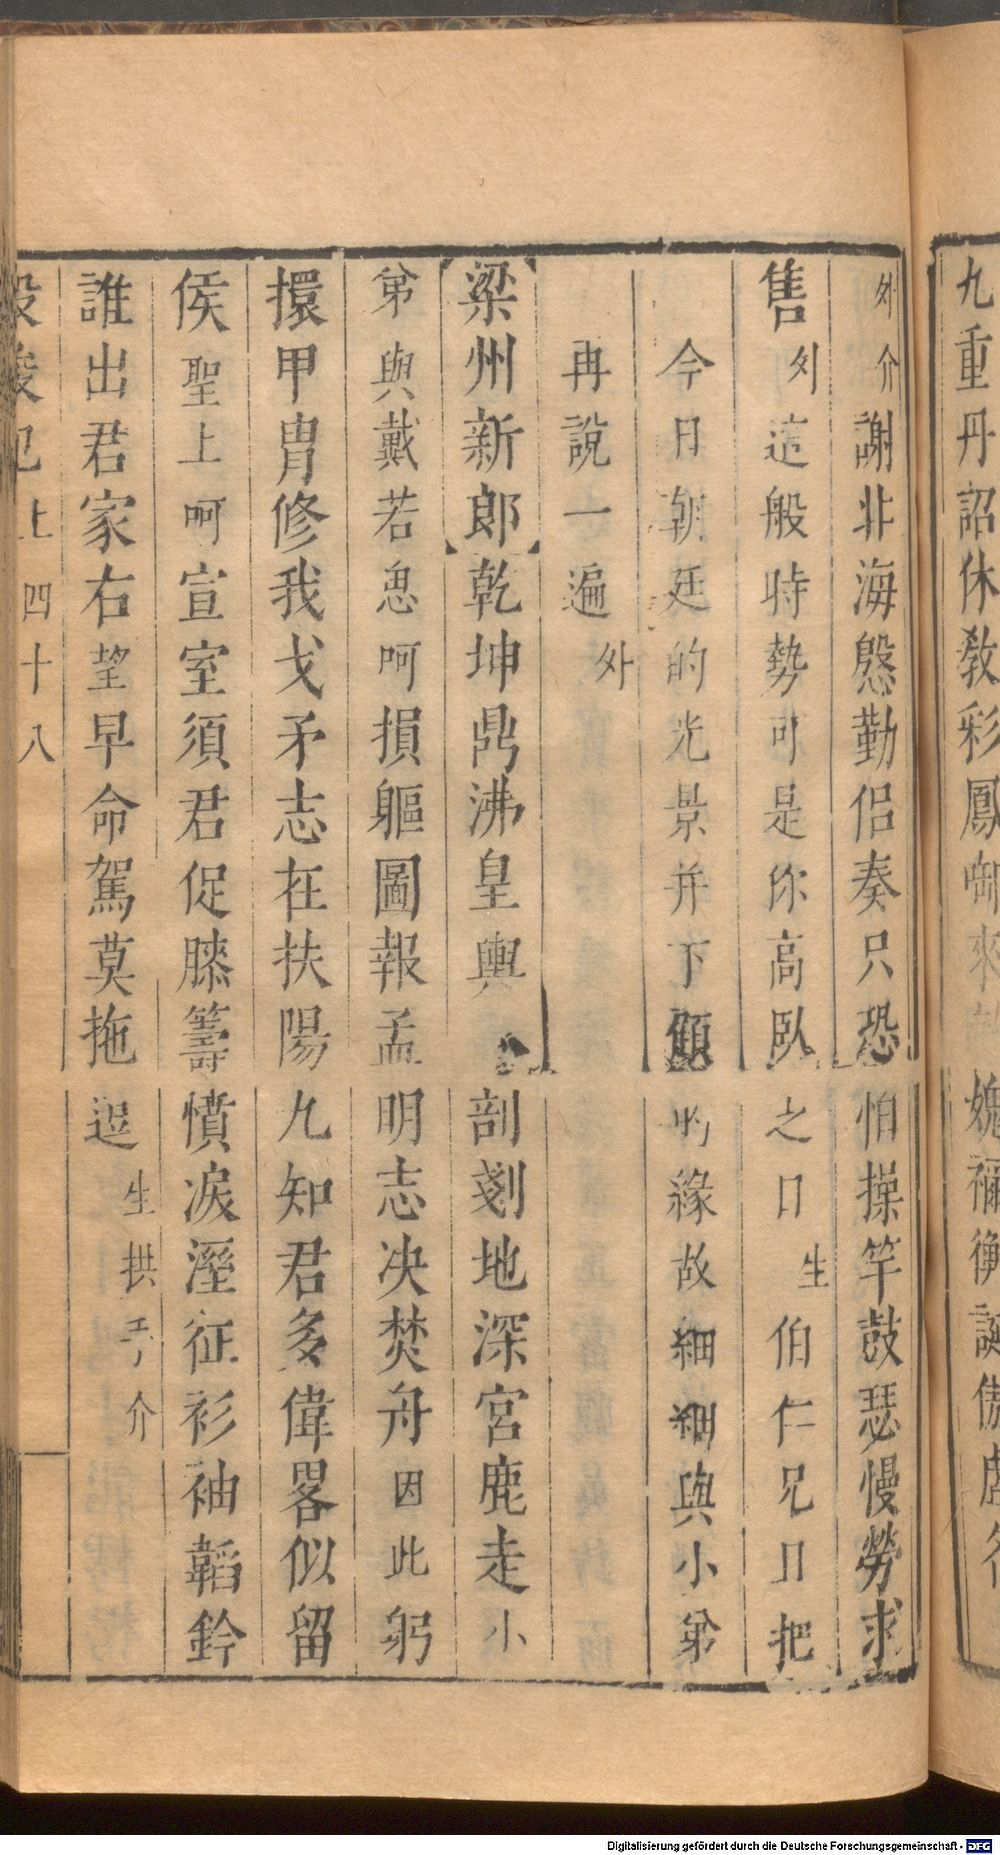 九重丹詔休教彩鳳啣來 媿禰衡誕傲虛
外介謝非海慇勤侣奏只恐怕操竿鼓瑟慢勞求
售外這般時勢可是你高臥之日生伯仁兄且把
今日朝廷的光景并下顧的緣故細細與小弟
再說一遍外
梁州新郎乾坤鼎沸皇輿剖剗地深宮鹿走小
弟與戴若思呵損軀圖報孟明志决焚舟因此躬
擐甲冑修我戈矛志在扶陽九知君多偉畧似留
侯聖上呵宣室須君促膝籌憤淚溼征衫袖韜鈐
誰出君家右望早命駕莫拖逗生拱手介
上 四十八
Digitalisierung gefördert durch die Deutsche Forschungsgemeinschaft - DFG